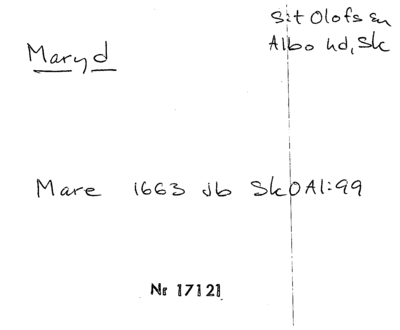 Maryd
S:t Olofs sn
Albo hd, Sk
Mare 1663 Jb SkOAl:99
Nr 17121